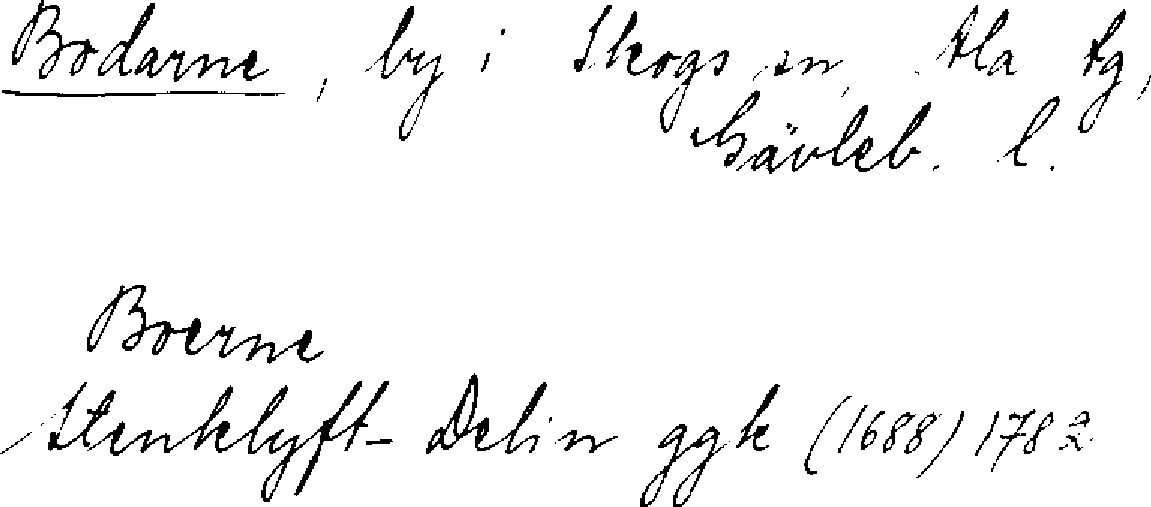 Bodarne, by i Skogs sn, Ala tg,
Gävleb. l.
Boerne
Stenklyft- Delin ggk (1688) 1782